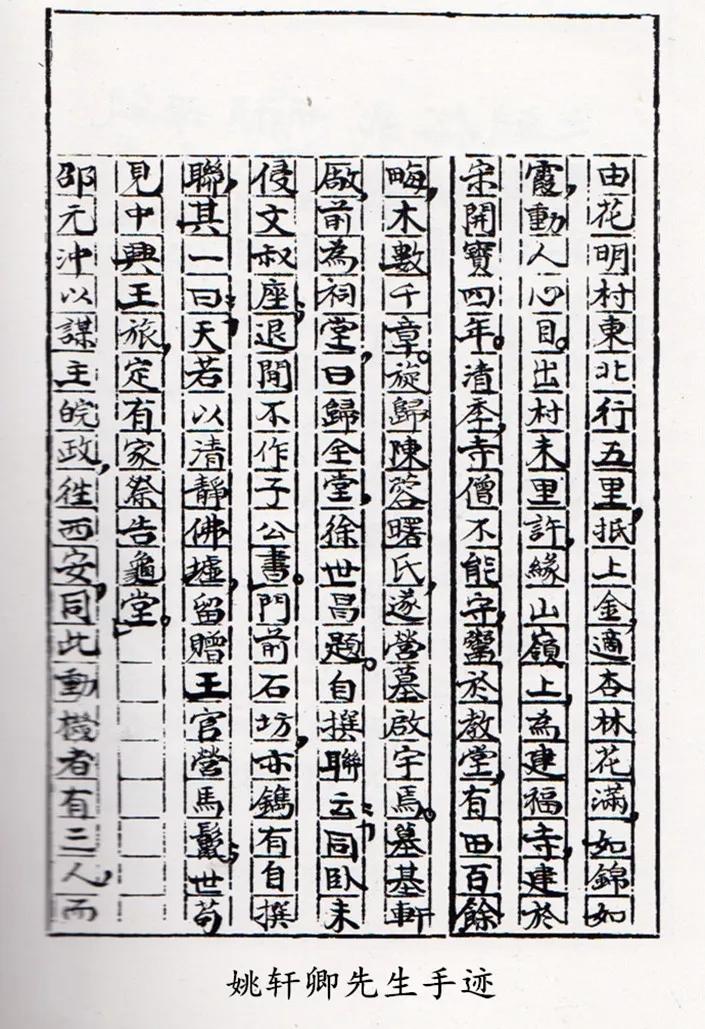 由花明村東北行五里，抵上金，適杏林花滿，如錦如
霞，動人心目。出村未里許，緣山嶺上，為建福寺，建於
宋開寶四年。清季，寺僧不能守，鬻於教堂，有田百餘
畮，木數千章。旋歸陳蓉曙氏，遂營墓啟宇焉。墓基軒
敞，前為祠堂，曰歸全堂，徐世昌題。自撰聯云：「同臥未
侵文叔座；退閒不作子公書。」門前石坊，亦鐫有自撰
聯，其一曰：「天若以清靜佛墟，留贈王官營馬鬣；世苟
見中興王旅，定有家祭告龜堂。」
邵元沖以謀主皖政，徃西安，同此動機者有三人，而
姚轩卿先生手迹